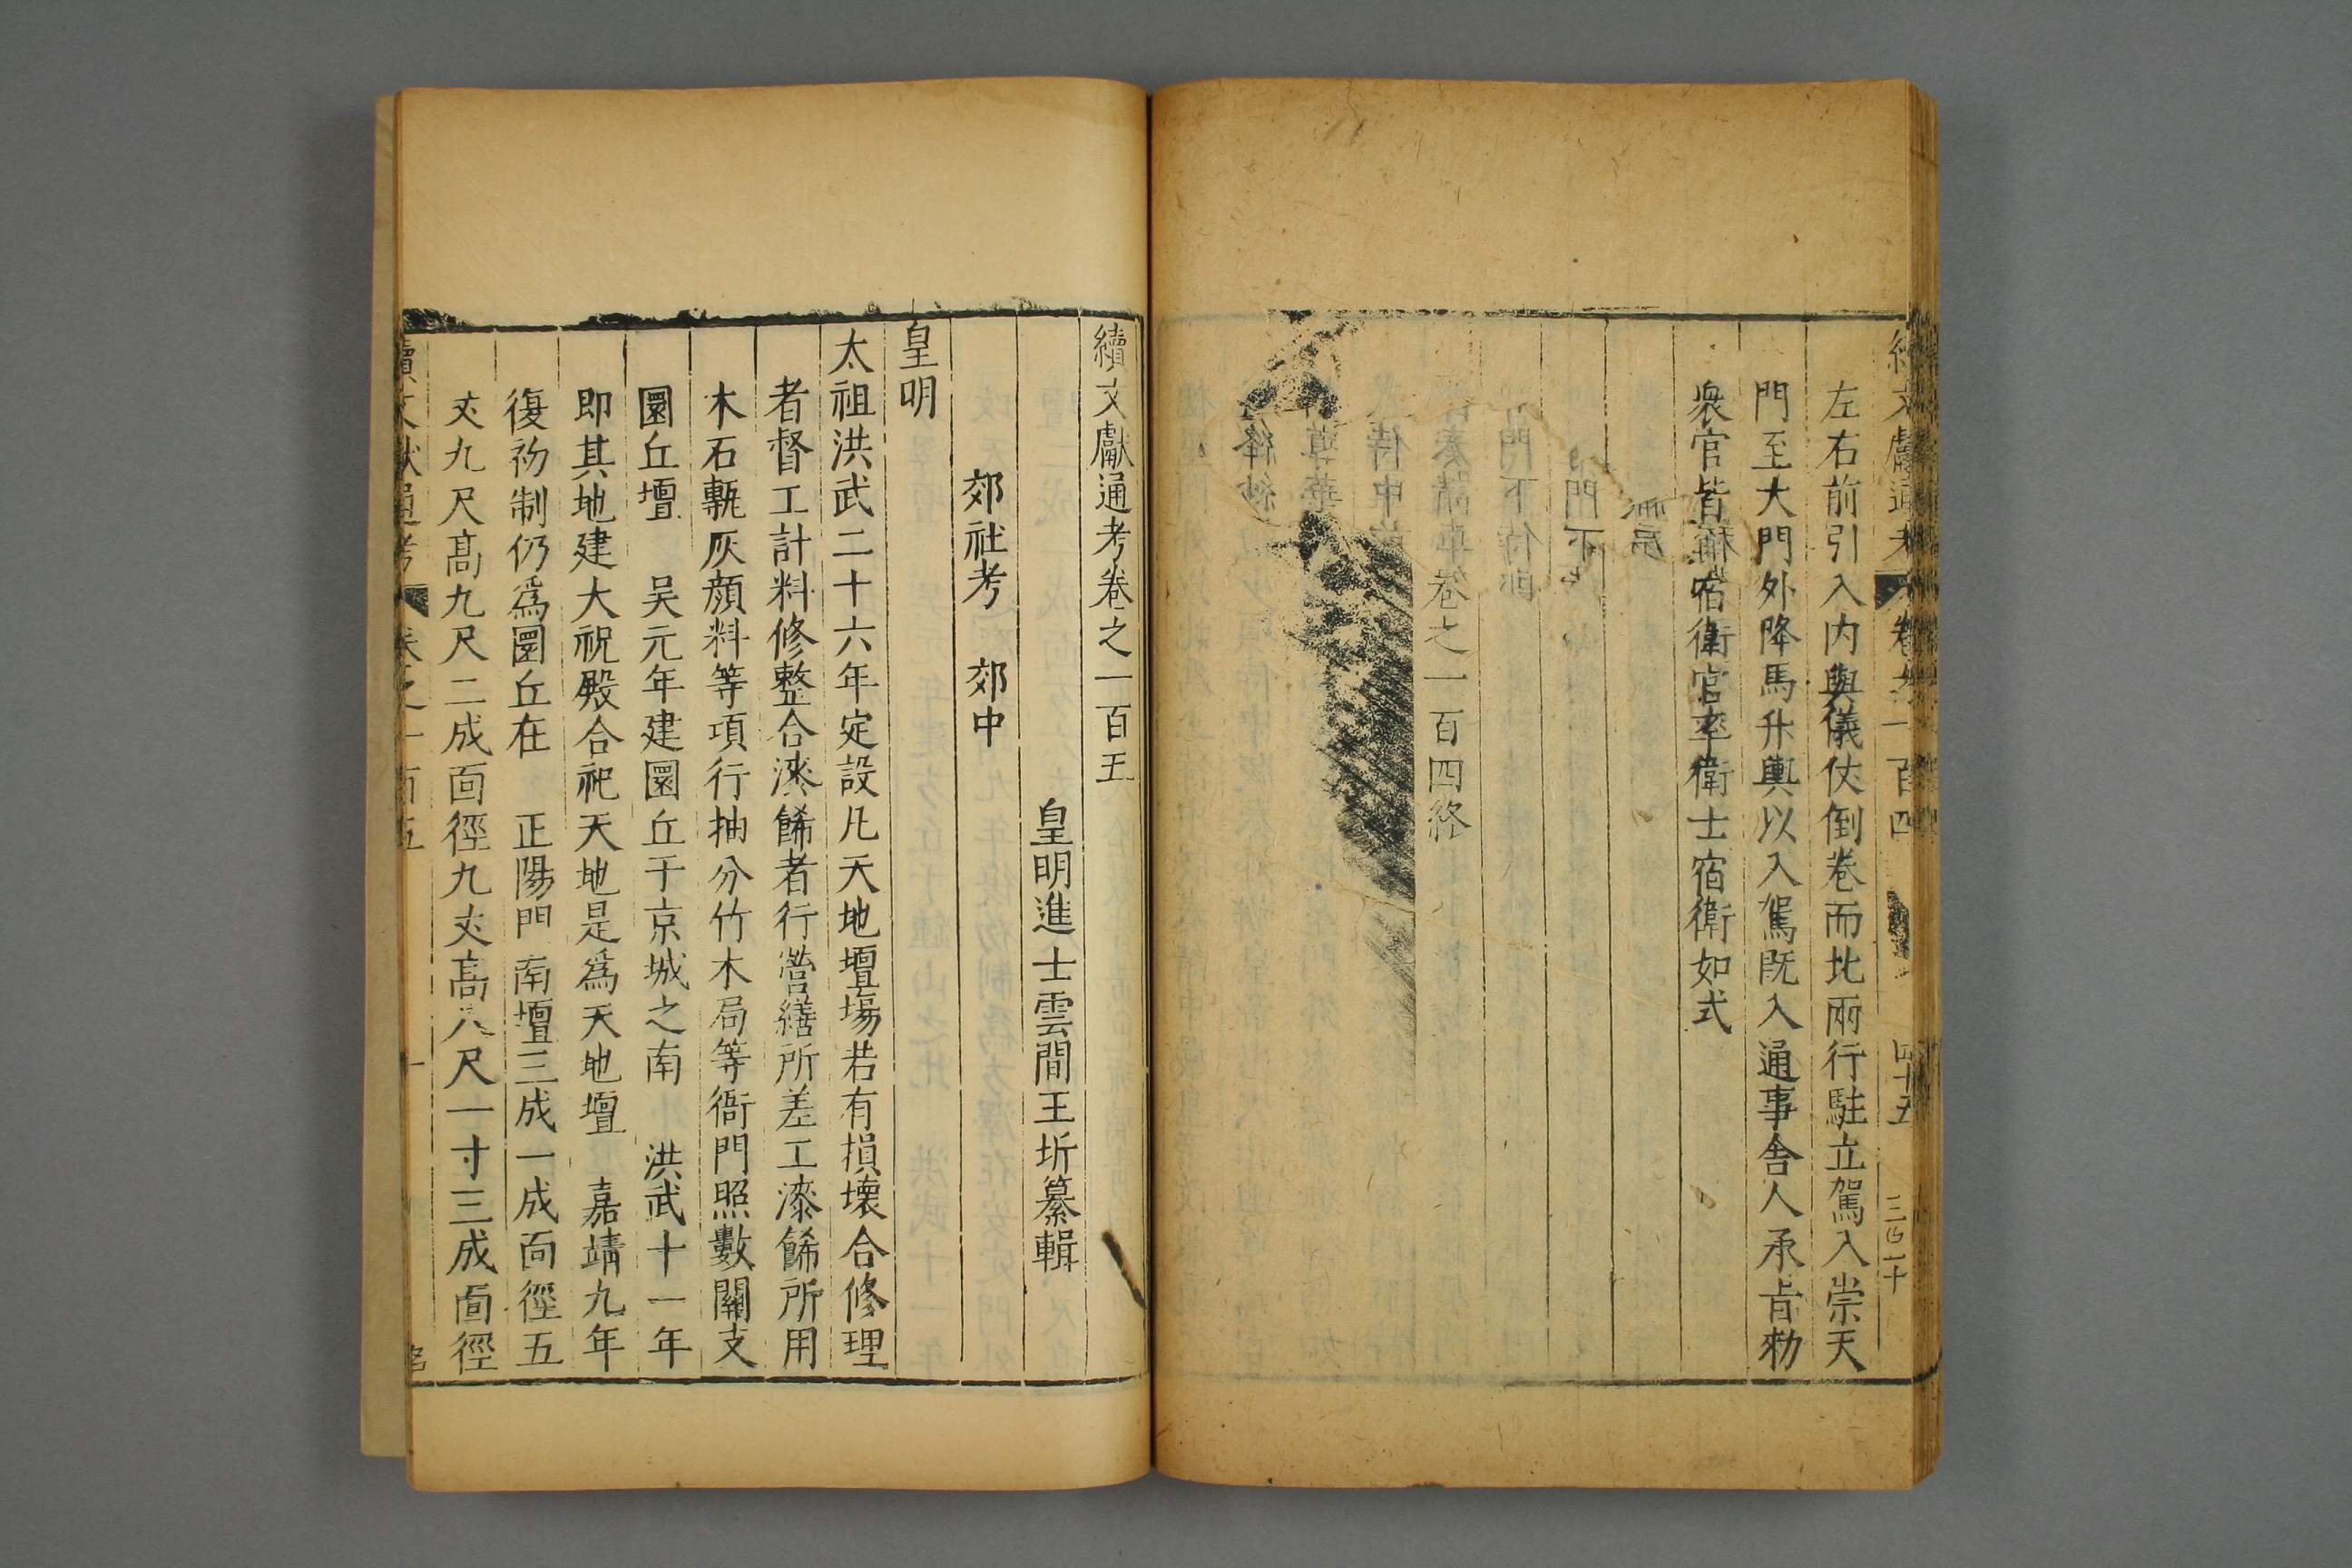 左右前引入内輿儀仗倒卷而北兩行駐立駕入崇天
門至大門外降馬升輿以入駕既入通事舍人承㫖勑
衆官皆宿衛官率衛士宿衛如式
卷之一百四終
續文獻通考卷之一百五
皇明進士雲間王圻纂輯
郊社考　郊中
皇明
太祖洪武二十六年定設凡天地壇塲若有損壊合修理
者督工計料修整合漆餙者行營繕所差工漆餙所用
木石甎灰顔料等項行抽分竹木局等衙門照數關支
圜丘壇　吴元年建圜丘于京城之南　洪武十一年
即其地建大祝殿合祀天地是爲天地壇　嘉靖九年
復初制仍爲圜丘在　正陽門南壇三成一成面徑五
丈九尺髙九尺二成面徑九丈髙八尺一寸三成面徑